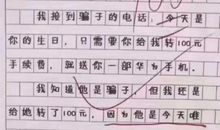 我接到骗子的电话，今天是
你的生日，只需要你给我转100元
手续费，就送你一部华为手机。
我知道他是骗子，但我还是
给她转了100元，因为他是今天唯